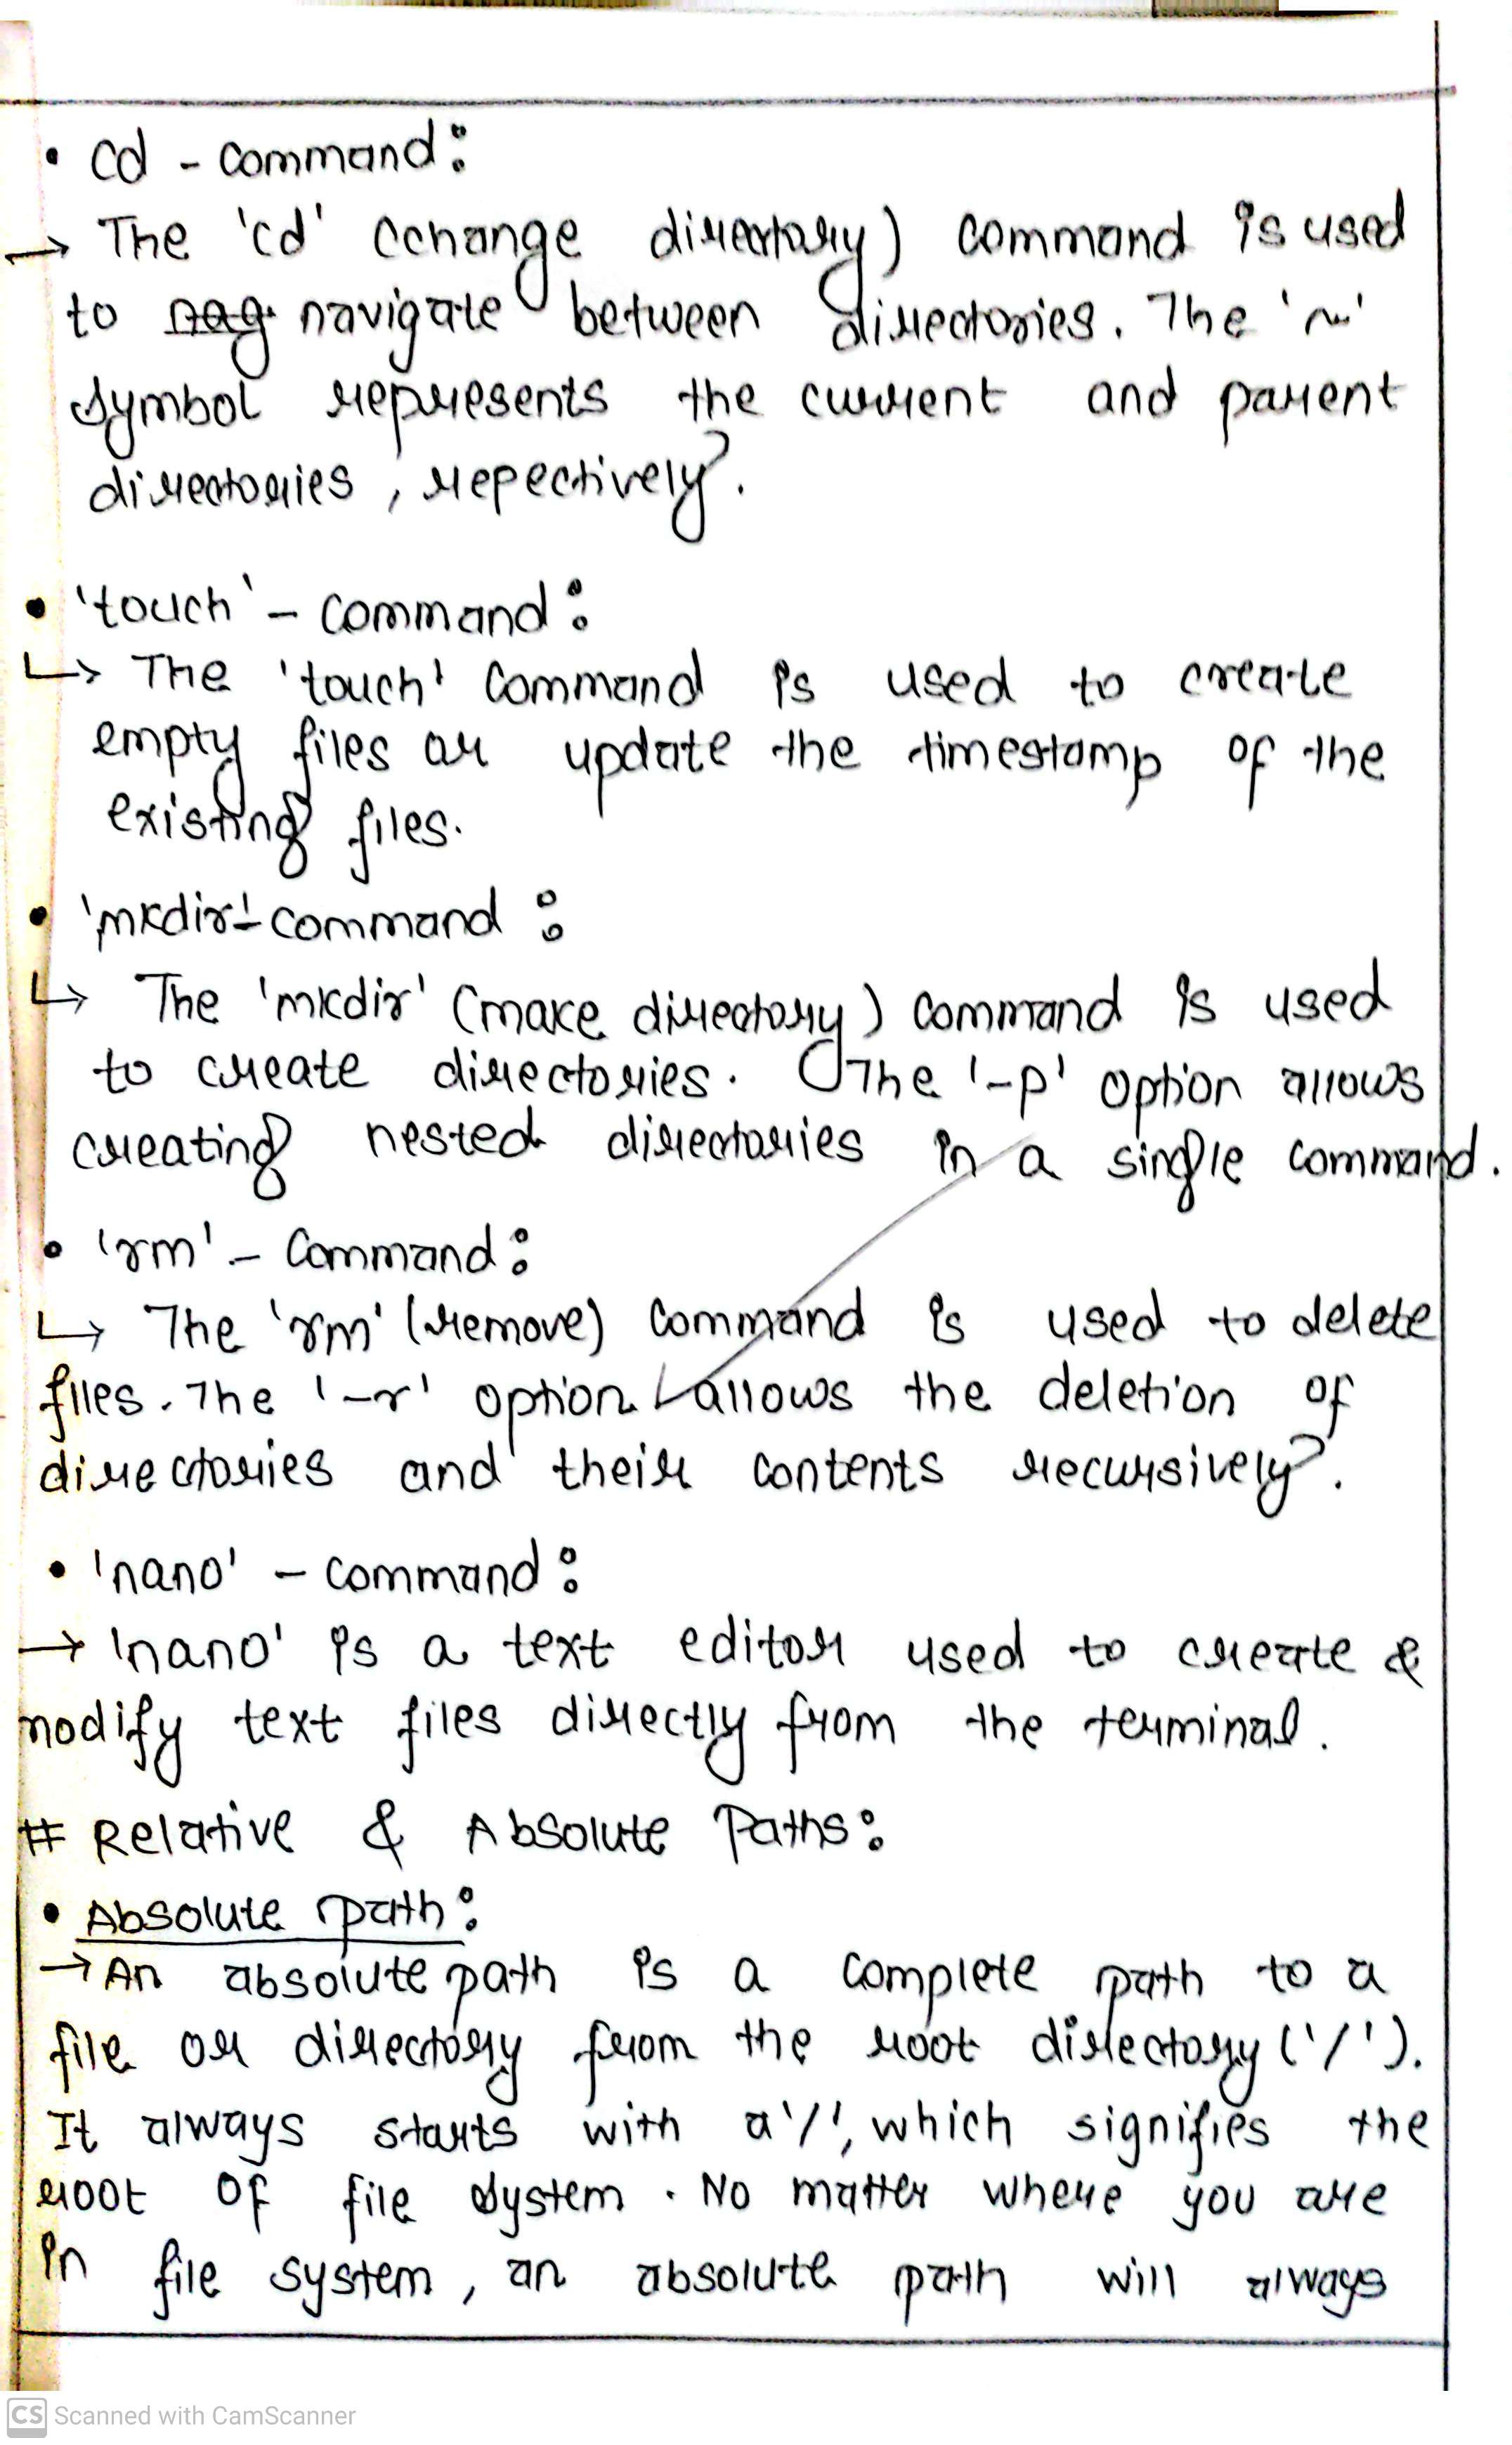 • cd - command:
→ The 'cd' (change directory) command is used
to nag. navigate between directories. The '~'
symbol represents the current and parent
directories, repectively.
• 'touch' - command:
↳ The 'touch' command is used to create
empty files or update the timestamp of the
existing files.
• 'mkdir' - command:
↳ The 'mkdir' (make directory) command is used
to create directories. The '-p' option allows
creating nested directories in a single command.
• 'rm' - command:
↳ The 'rm' (remove) command is used to delete
files. The '-r' option allows the deletion of
directories and their contents recursively.
• 'nano' - command:
→ 'nano' is a text editor used to create &
modify text files directly from the terminal.
# Relative & Absolute Paths:
• Absolute path:
→ An absolute path is a complete path to a
file or directory from the root directory ('/').
It always starts with a '/', which signifies the
root of file system. No matter where you are
in file system, an absolute path will always
CS Scanned with CamScanner